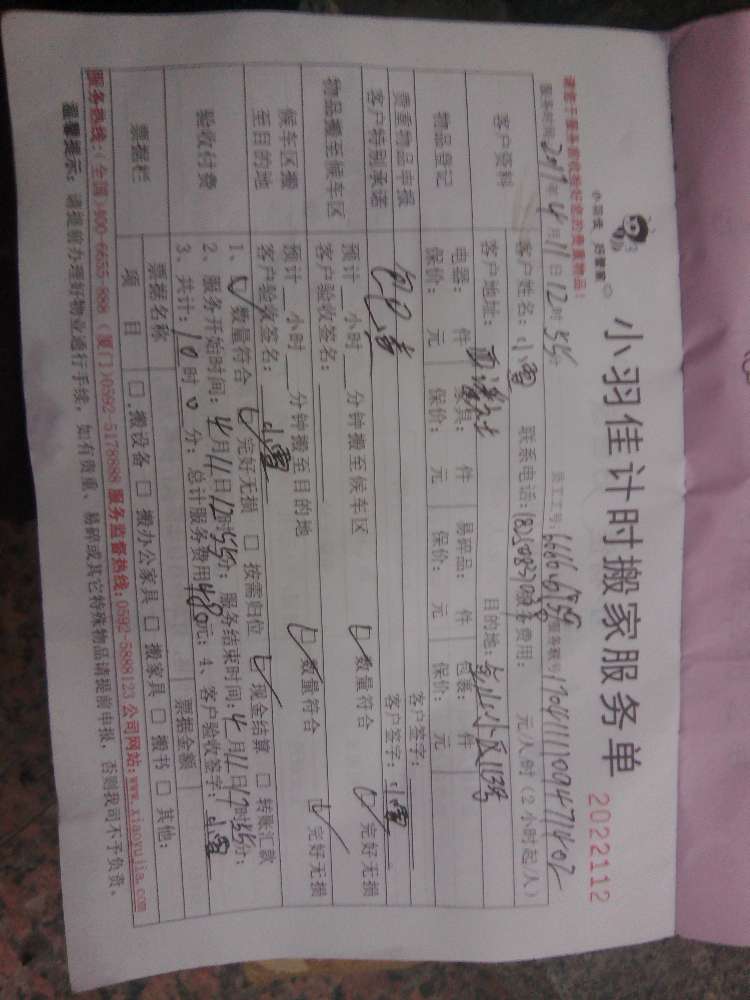 小羽佳计时搬家服务单
2022112
小羽佳 好管家
请查于服务前收拾好您的贵重物品!
服务时间: 2017年4月11日12时55分 员工工号: 服务账号170411110094711402
客户资料
客户姓名: 小雷 联系电话: 费用: 元/人时 (2小时起/人)
客户地址: 目的地:
物品登记
电器: 件 家具: 件 易碎品: 件 包裹: 件
保价: 元 保价: 元 保价: 元 保价: 元
贵重物品申报 客户签字:
客户特别承诺 已清 客户签字: 小雷
物品搬至候车区
预计 小时 分钟搬至候车区 数量符合 完好无损
客户验收签名:
候车区搬至目的地
预计 小时 分钟搬至目的地 数量符合 完好无损
客户验收签名: 小雷
验收付费
1、 数量符合 完好无损 □ 按需归位 现金结算 □ 转账汇款
2、服务开始时间: 4月11日12时55分; 服务结束时间: 4月11日17时55分;
3、共计: 10时0分; 总计服务费用480元; 4、客户验收签字: 小雷
票据栏
票据名称 票据金额
项目 □ 搬设备 □ 搬办公家具 □ 搬家具 □ 搬书 □ 其他:
服务热线: (全国)400-6655-888 (厦门)0592-5178888 服务监督热线: 0592-5888123 公司网站: www.xiaoyujia.com
温馨提示: 请提前办理好物业通行手续, 如有贵重、易碎或其它特殊物品请提前申报, 否则我司不予负责。